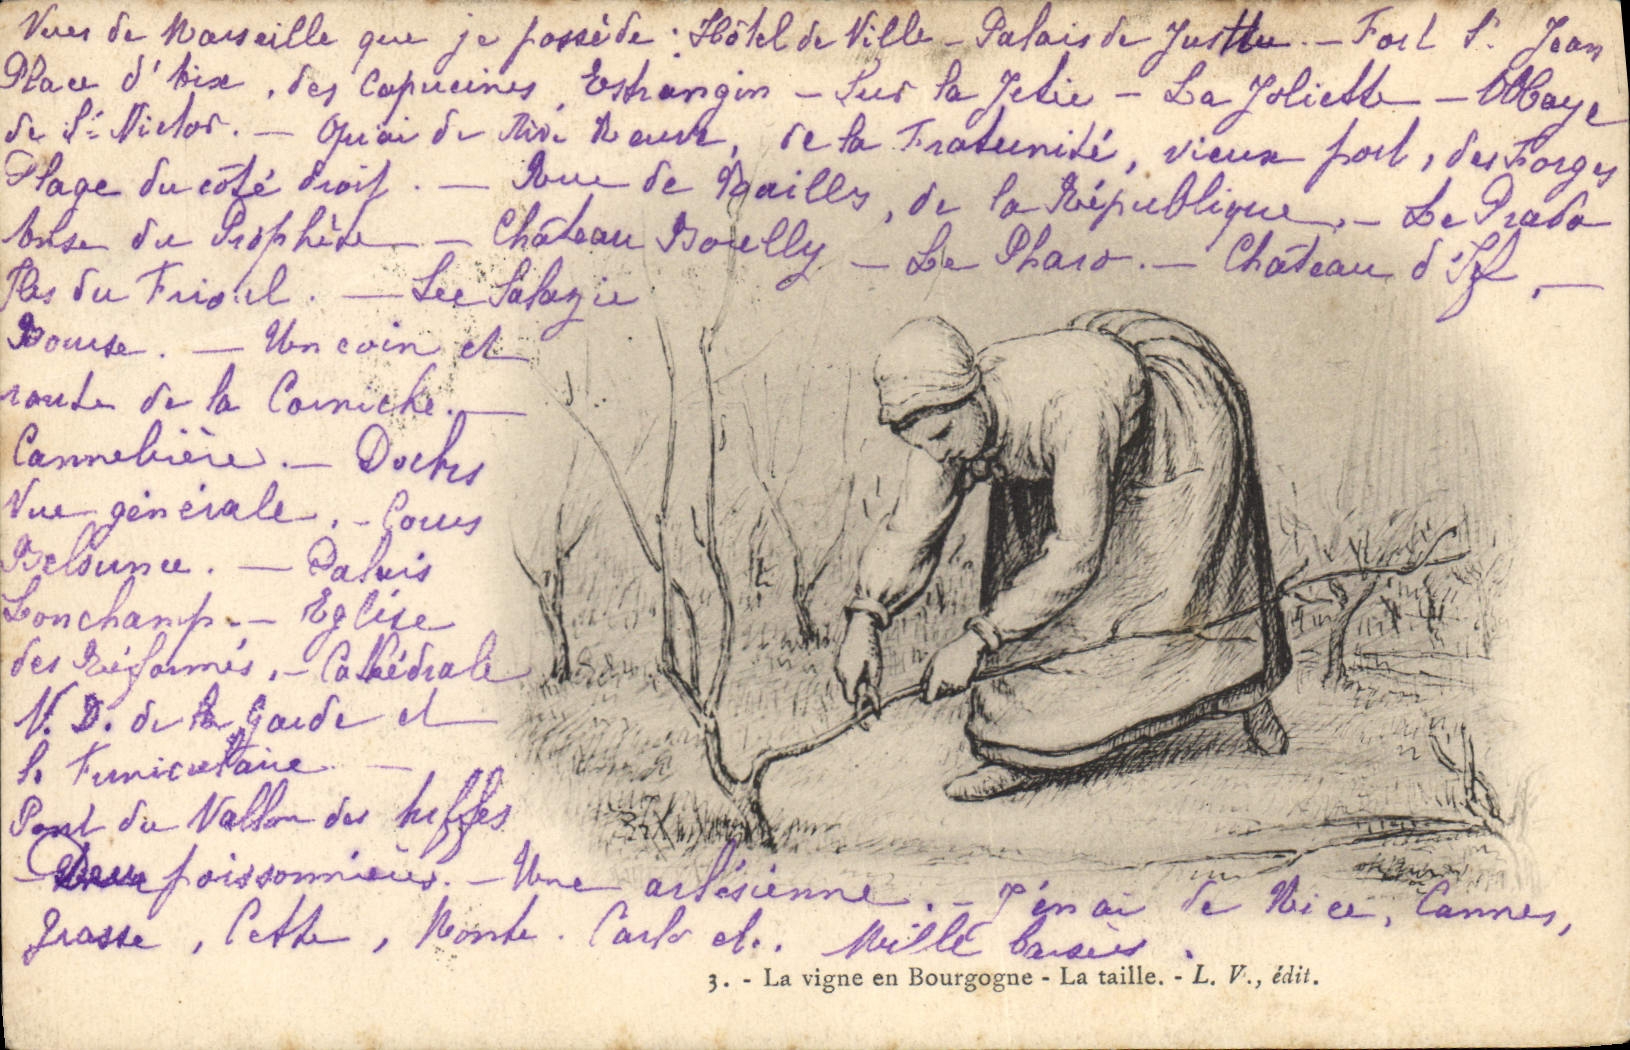 Vues de Marseille que je possède : Hôtel de Ville - Palais de Justice. - Fort St Jean
Place d'Aix, des Capucines, Estrangin - Sur la Jetée - La Joliette - Abbaye
de St Victor. - Quai de Rive Neuve, de la Fraternité, vieux port, des Forges
Plage du côté droit. - Rue de Noailles, de la République. - Le Prado
Anse du Prophète - Château Borelly - Le Pharo. - Château d'If, -
Iles du Frioul. - Le Salazie
Bourse. - Un coin et
route de la Corniche. -
Cannebière. - Docks
Vue générale. - Cours
Belsunce. - Palais
Lonchamp. - Eglise
des Réformés. - Cathédrale
N. D. de la Garde et
l. Funiculaire -
Pont du Vallon des Auffes
- Deux poissonnières. - Une arlésienne. - J'en ai de Nice, Cannes,
Grasse, Cette, Monte-Carlo et. Mille baisers.
3. - La vigne en Bourgogne - La taille. - L. V., édit.